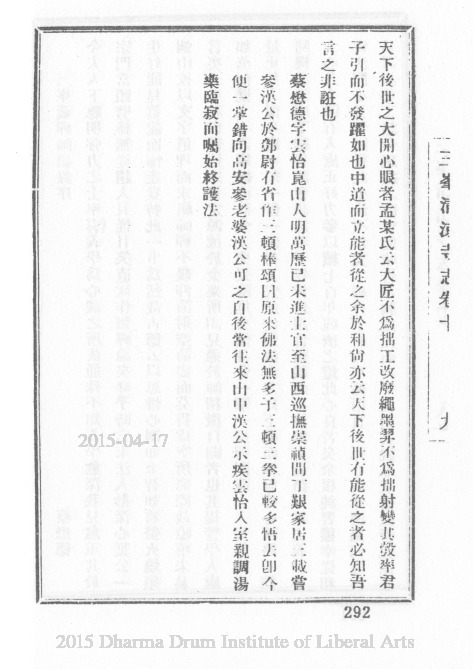 天下後世之大開心眼者孟某氏云大匠不爲拙工改廢繩墨羿不爲拙射變其彀率君
子引而不發躍如也中道而立能者從之余於和尚亦云天下後世有能從之者必知吾
言之非誑也
蔡懋德字雲怡崑山人明萬歷己未進士官至山西巡撫崇禎間丁艱家居三載嘗
參漢公於鄧尉有省作三頓棒頌曰原來佛法無多子三頓三拳已較多悟去卽今
便一掌錯向高安參老婆漢公可之自後常往來山中漢公示疾雲怡入室親調湯
藥臨寂而囑始終護法
三峯清涼寺志卷十
九
2015-04-17
292
2015 Dharma Drum Institute of Liberal Arts